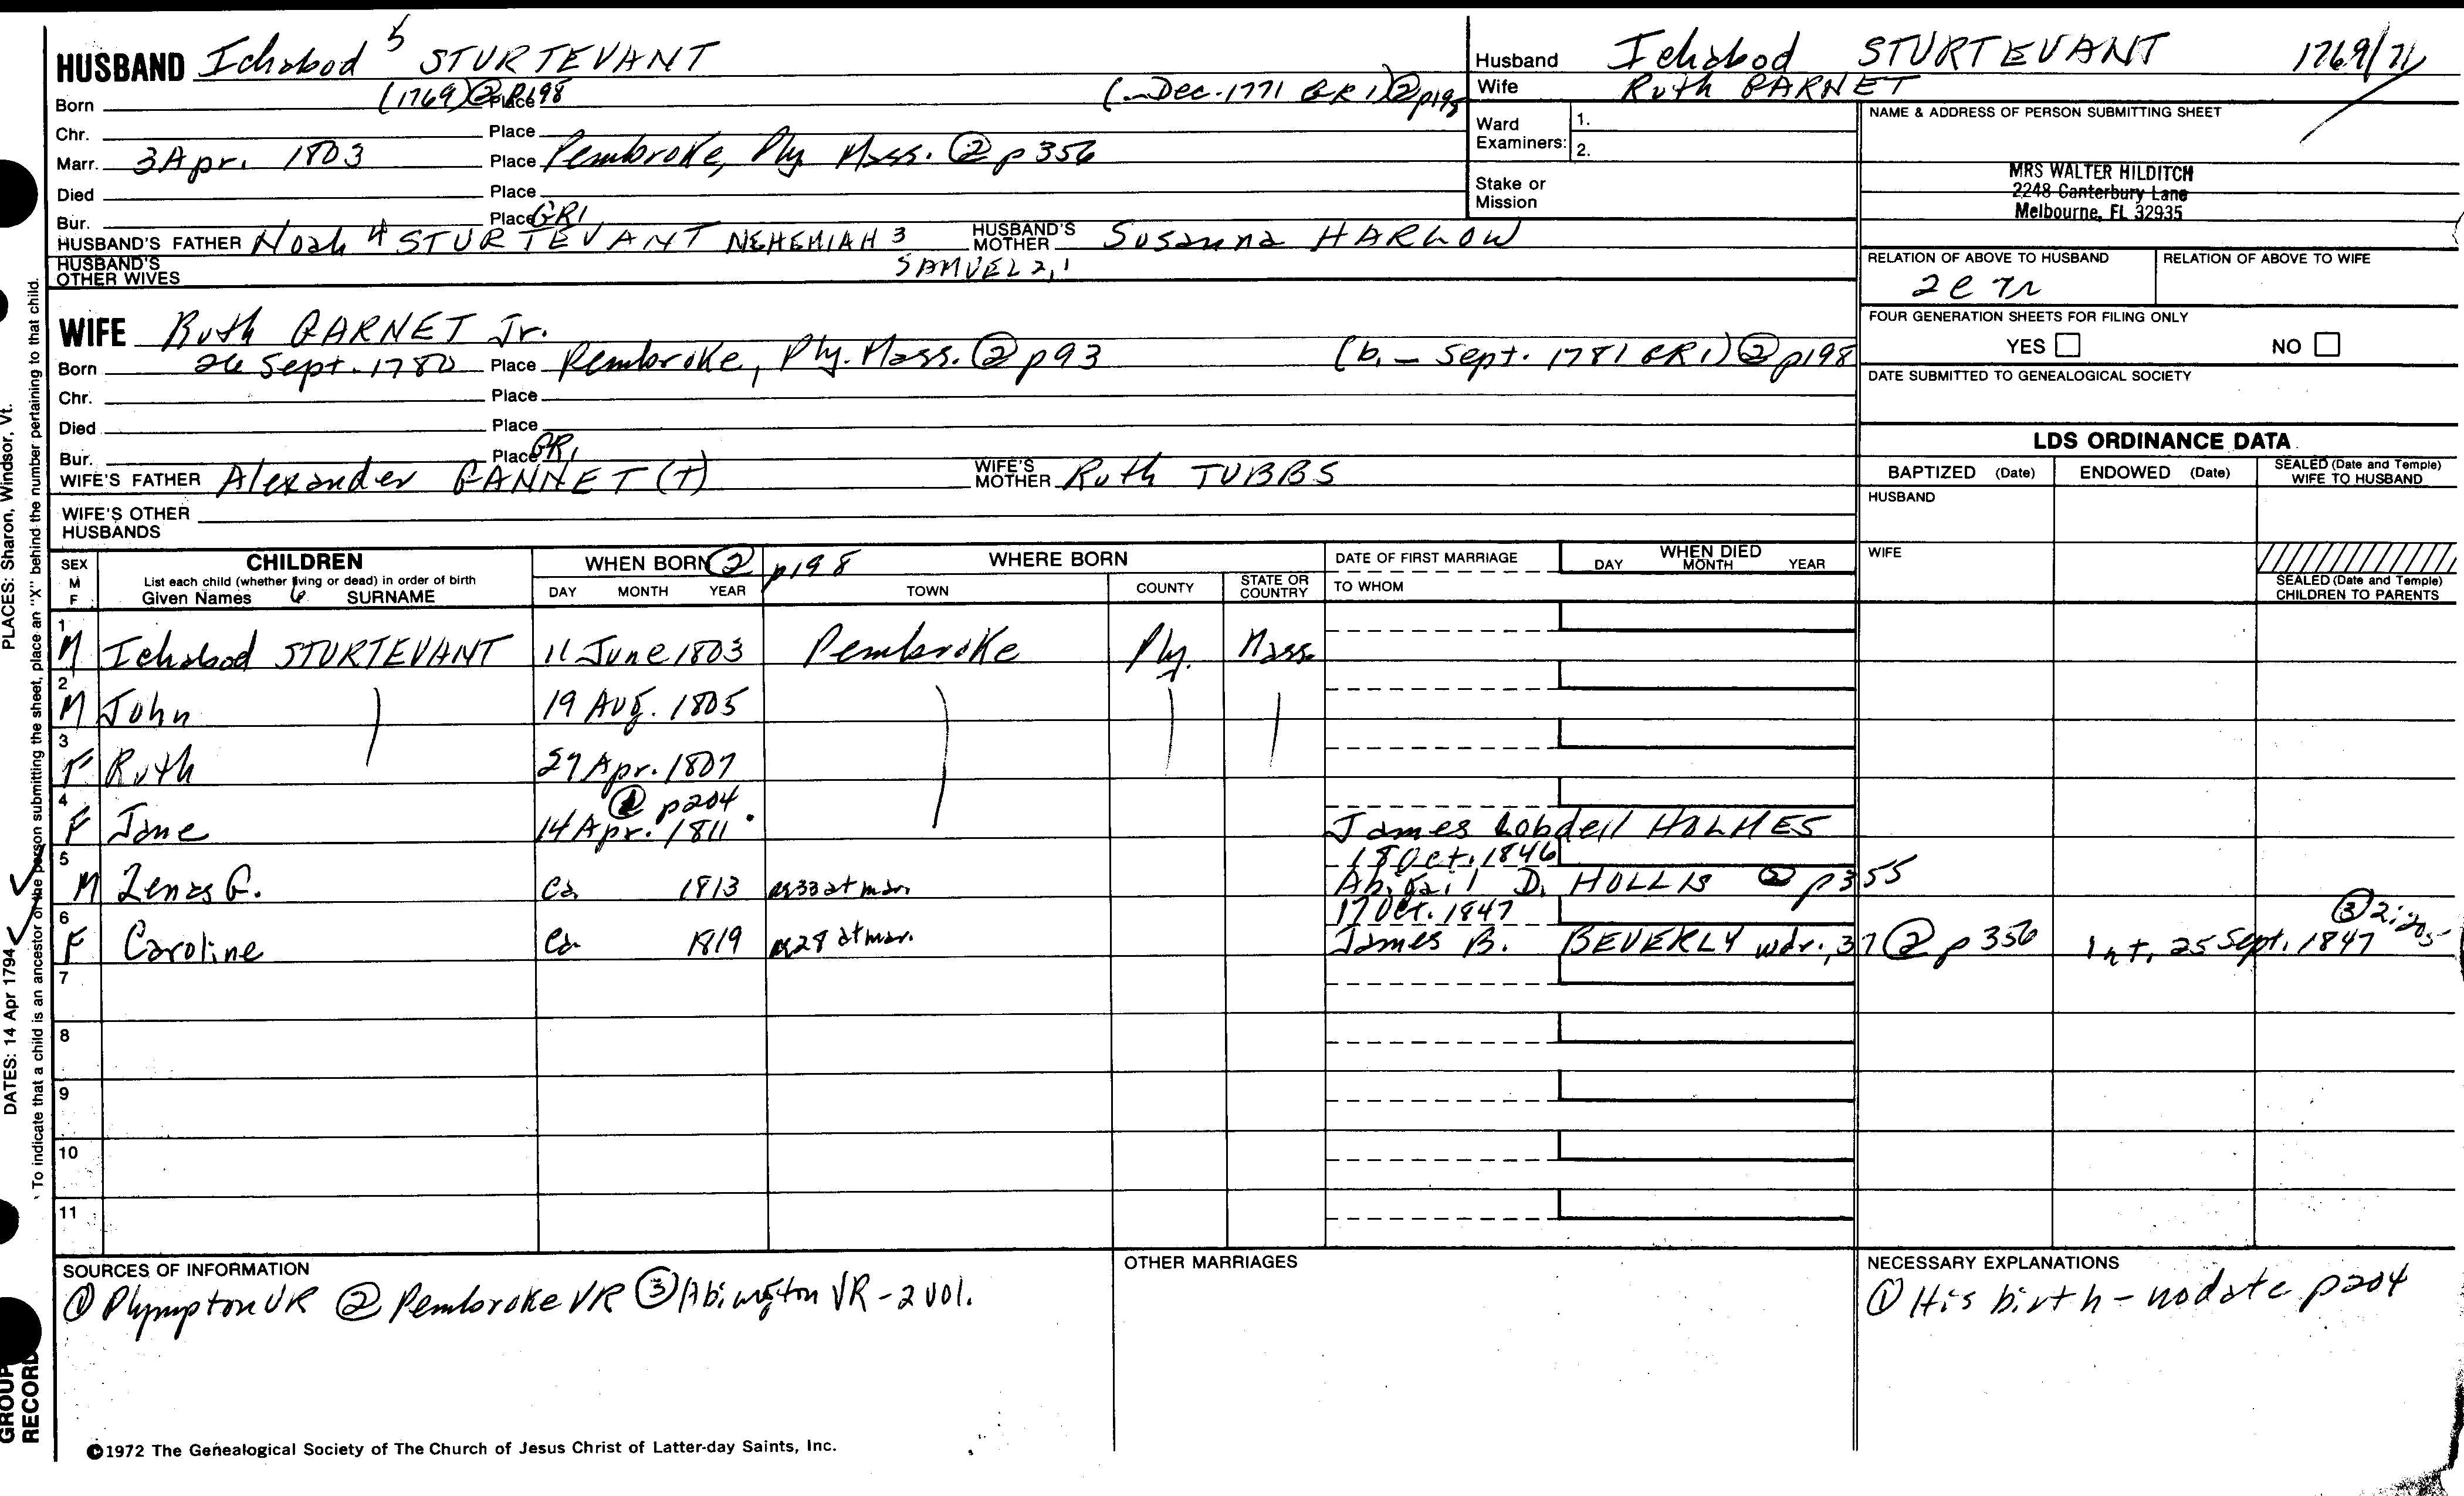 HUSBAND Ichabod 5 STURTEVANT
Born (1769) ② p198 Place (— Dec. 1771 GR1) ② p198
Chr. Place
Marr. 3 Apr. 1803 Place Pembroke, Ply. Mass. ② p 356
Died Place
Bur. Place GR1
HUSBAND'S FATHER Noah 4 STURTEVANT NEHEMIAH 3 HUSBAND'S MOTHER Susanna HARLOW
SAMUEL 2,1
HUSBAND'S OTHER WIVES
WIFE Ruth GARNET Jr.
Born 26 Sept. 1780 Place Pembroke, Ply. Mass. ② p 93 (b. — Sept. 1781 GR1) ② p198
Chr. Place
Died Place
Bur. Place GR1
WIFE'S FATHER Alexander GANNET (T) WIFE'S MOTHER Ruth TUBBS
WIFE'S OTHER HUSBANDS
Husband Ichabod STURTEVANT 1769/71
Wife Ruth GARNET
Ward Examiners: 1.
2.
Stake or Mission
NAME & ADDRESS OF PERSON SUBMITTING SHEET
MRS WALTER HILDITCH
2248 Canterbury Lane
Melbourne, FL 32935
RELATION OF ABOVE TO HUSBAND RELATION OF ABOVE TO WIFE
2c 7r
FOUR GENERATION SHEETS FOR FILING ONLY
YES NO
DATE SUBMITTED TO GENEALOGICAL SOCIETY
LDS ORDINANCE DATA
BAPTIZED (Date) ENDOWED (Date) SEALED (Date and Temple) WIFE TO HUSBAND
HUSBAND
WIFE
SEALED (Date and Temple) CHILDREN TO PARENTS
SEX M F CHILDREN WHEN BORN ② p198 WHERE BORN DATE OF FIRST MARRIAGE WHEN DIED
List each child (whether living or dead) in order of birth
Given Names 6 SURNAME DAY MONTH YEAR TOWN COUNTY STATE OR COUNTRY TO WHOM DAY MONTH YEAR
1 M Ichabod STURTEVANT 11 June 1803 Pembroke Ply. Mass.
2 M John 19 Aug. 1805
3 F Ruth 27 Apr. 1807
① p204
4 F Jane 14 Apr. 1811 James Lobdell HOLMES
18 Oct. 1846
5 M Zenas G. ca 1813 ag 33 at mar. Abigail D. HOLLIS ② p355
17 Oct. 1847
6 F Caroline ca 1819 ag 28 at mar. James B. BEVERLY wdr., 37 ② p 356 Int. 25 Sept. 1847 ③ 2:205
7
8
9
10
11
SOURCES OF INFORMATION
① Plympton VR ② Pembroke VR ③ Abington VR - 2 vol.
OTHER MARRIAGES
NECESSARY EXPLANATIONS
① His birth - no date p204
©1972 The Genealogical Society of The Church of Jesus Christ of Latter-day Saints, Inc.
PLACES: Sharon, Windsor, Vt.
DATES: 14 Apr 1794
To indicate that a child is an ancestor of the person submitting the sheet, place an "X" behind the number pertaining to that child.
GROUP RECORD